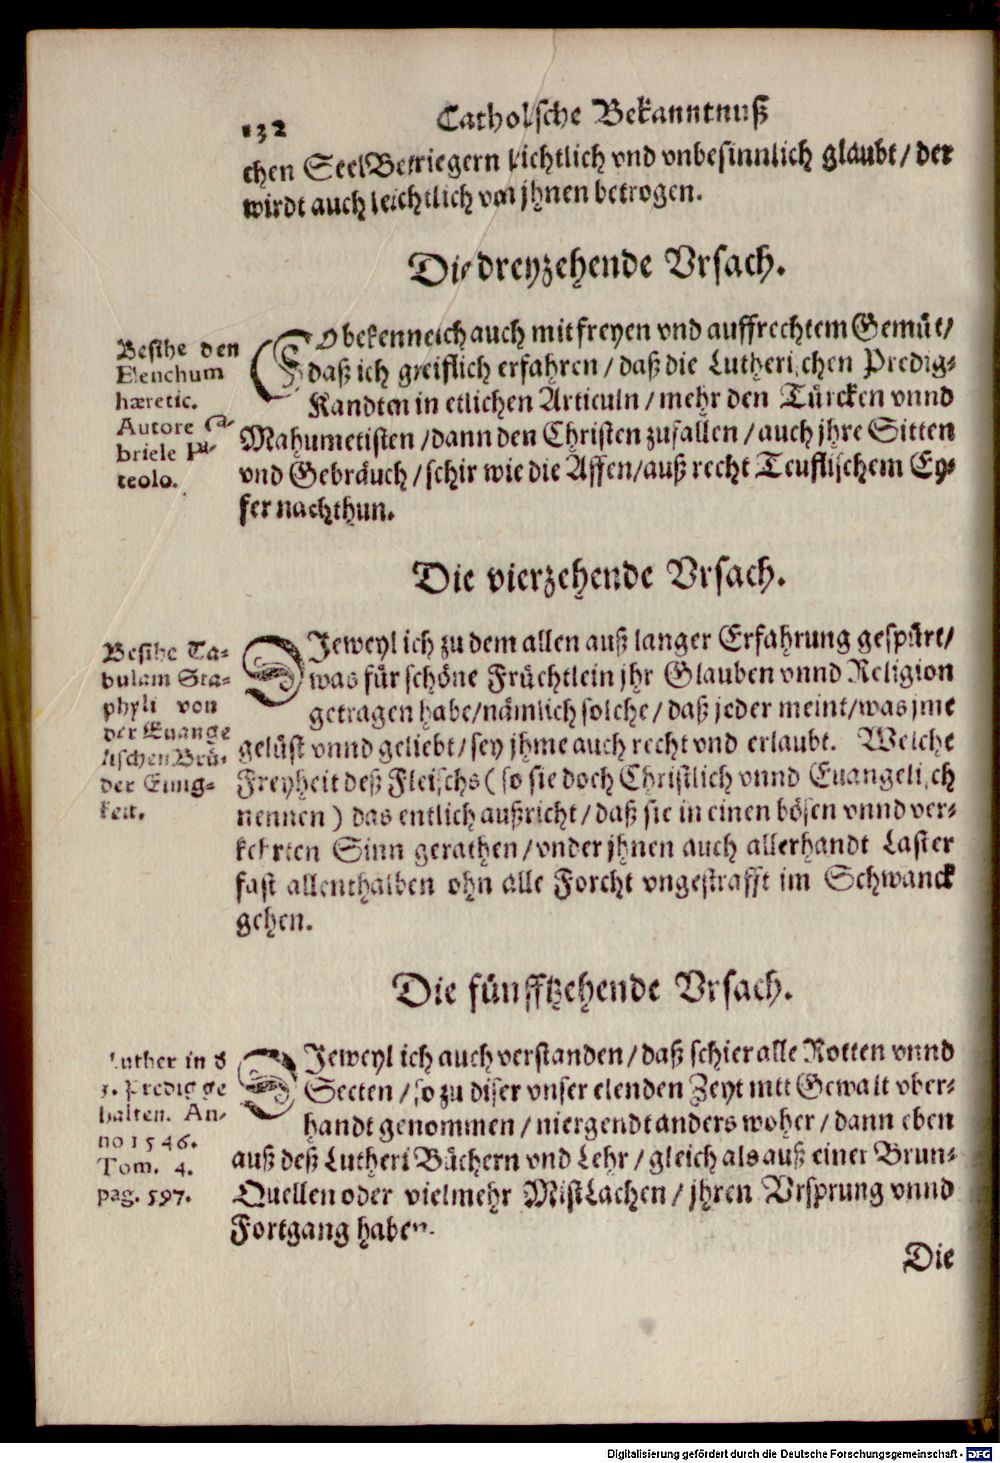 132
Catholische Bekanntnuß
chen SeelBetriegern lichtlich vnd vnbesinnlich glaubt / der
wirdt auch leichtlich von jhnen betrogen.
Die dreyzehende Vrsach.
Besihe den
Elenchum
hæretic.
Autore Ga-
briele Pu-
teolo.
SO bekenne ich auch mit freyen vnd auffrechtem Gemüt /
daß ich greiflich erfahren / daß die Lutherischen Predig-
Kandten in etlichen Articuln / mehr den Türcken vnnd
Mahumetisten / dann den Christen zufallen / auch jhre Sitten
vnd Gebräuch / schir wie die Affen / auß recht Teuflischem Ey-
fer nachthun.
Die vierzehende Vrsach.
Besihe Ta-
bulam Sta-
phyli von
der Euange
lischen Brü-
der Einig-
keit.
DJeweyl ich zu dem allen auß langer Erfahrung gespürt /
was für schöne Früchtlein jhr Glauben vnnd Religion
getragen habe / nämlich solche / daß jeder meint / was jme
gelüst vnnd geliebt / sey jhme auch recht vnd erlaubt. Welche
Freyheit deß Fleischs ( so sie doch Christlich vnnd Euangelisch
nennen ) das entlich außricht / daß sie in einen bösen vnnd ver-
kehrten Sinn gerathen / vnder jhnen auch allerhandt Laster
fast allenthalben ohn alle Forcht vngestrafft im Schwanck
gehen.
Die fünfftzehende Vrsach.
Luther in d
3. Predig ge
halten. An-
no 1546.
Tom. 4.
pag. 597.
DJeweyl ich auch verstanden / daß schier alle Rotten vnnd
Secten / so zu diser vnser elenden Zeyt mit Gewalt vber-
handt genommen / niergendt anders woher / dann eben
auß deß Lutheri Büchern vnd Lehr / gleich als auß einer Brun-
Quellen oder vielmehr MistLachen / jhren Vrsprung vnnd
Fortgang haben.
Die
Digitalisierung gefördert durch die Deutsche Forschungsgemeinschaft - DFG